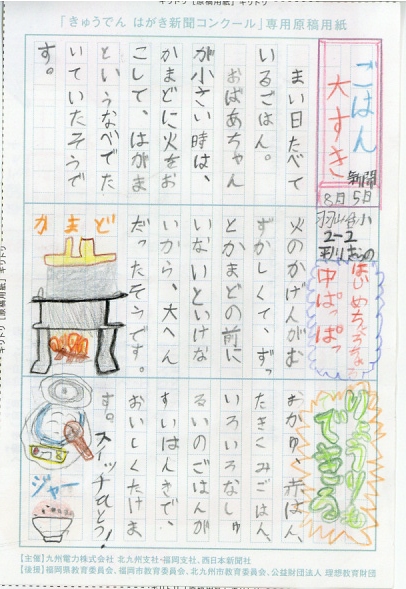 「きゅうでん はがき新聞コンクール」専用原稿用紙
ごはん
大すき
新聞
8月5日
2-2
まい日たべて
いるごはん。
おばあちゃん
が小さい時は、
かまどに火をお
こして、はがま
というなべでた
いていたそうで
す。
中ぱっぱっ
火のかげんがむ
ずかしくて、ずっ
とかまどの前に
いないといけな
いから、大へん
だったそうです。
かまど
りょうりも
できる
おかゆ、赤はん、
たきくみごはん、
いろいろなしゅ
るいのごはんが
すいはんきで、
おいしくたけま
す。スイッチひとつ!
ジャー
【主催】九州電力株式会社 北九州支社・福岡支社、西日本新聞社
【後援】福岡県教育委員会、福岡市教育委員会、北九州市教育委員会、公益財団法人 理想教育財団